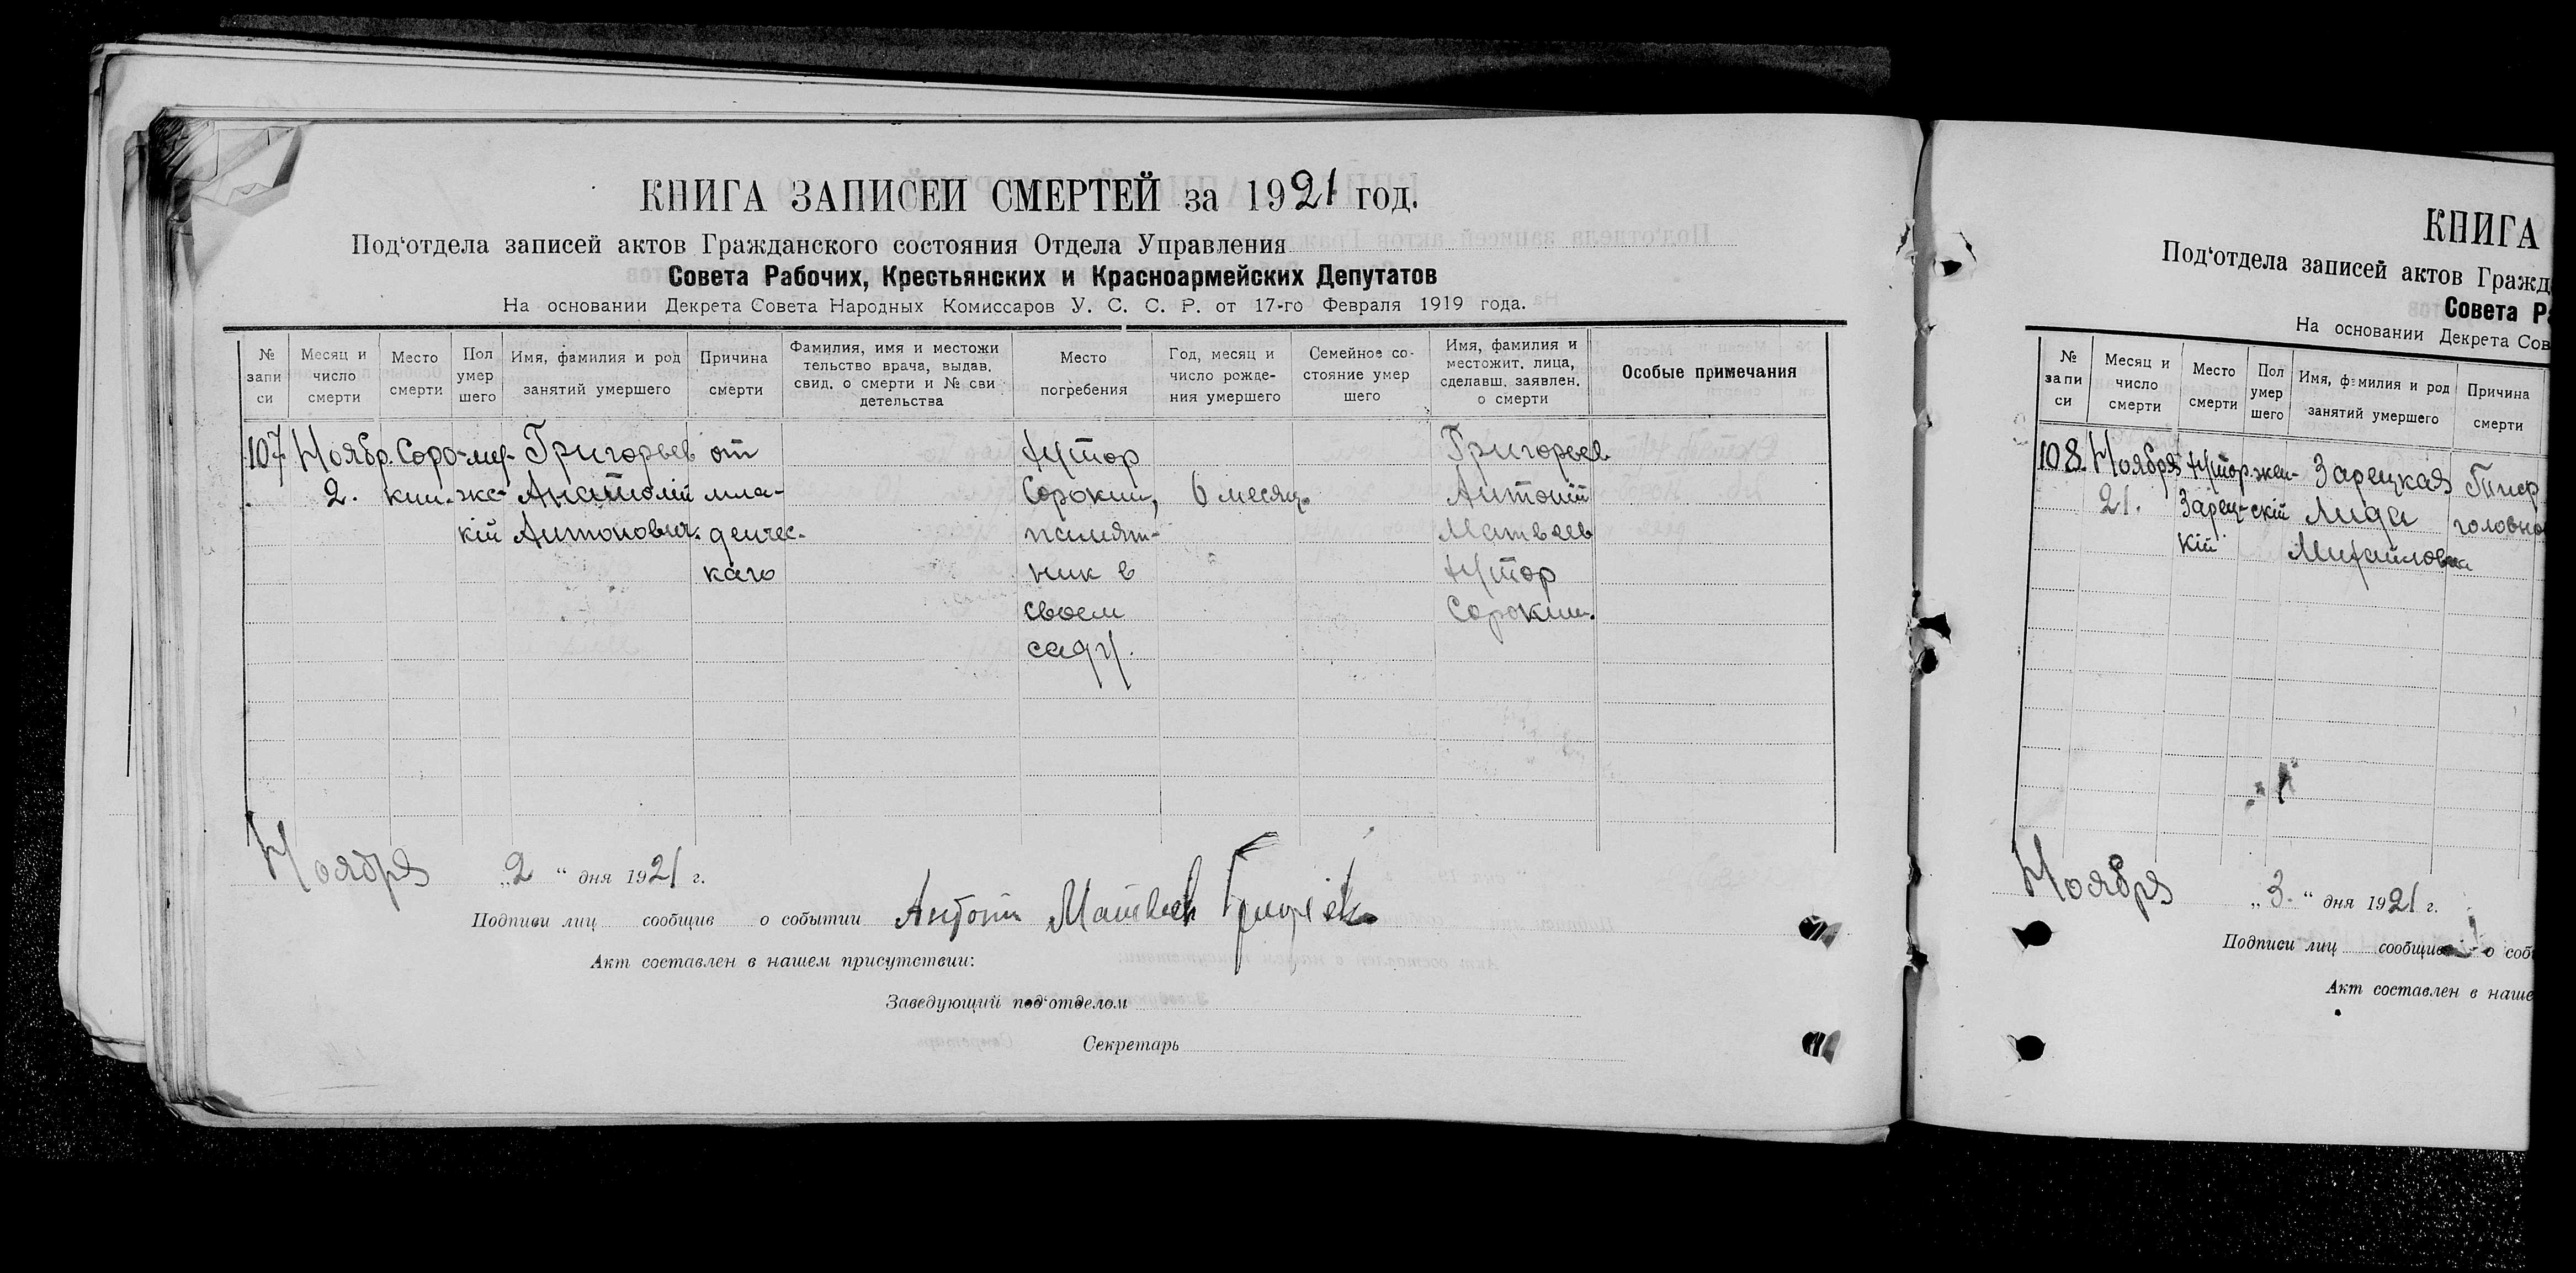 КНИГА ЗАПИСЕЙ СМЕРТЕЙ за 1921 год.
Под‘отдела записей актов Гражданского состояния Отдела Управления
Совета Рабочих, Крестьянских и Красноармейских Депутатов
На основании Декрета Совета Народных Комиссаров У. С. С. Р. от 17-го Февраля 1919 года.
№ запи си
Месяц и число смерти
Место смерти
Пол умер шего
Имя, фамилия и род занятий умершего
Причина смерти
Фамилия, имя и местожи тельство врача, выдав. свид. о смерти и № сви детельства
Место погребения
Год, месяц и число рожде- ния умершего
Семейное со- стояние умер шего
Имя, фамилия и местожит. лица, сделавш. заявлен. о смерти
Особые примечания
107 Ноябр. Соро- му- Григорьев от хутор Григорьев
2. кин. жс- Анатолій мла- Сорокин, 6 месяц. Антоній
кій Антонович. денчес- Матвеев
каго ник в хутор
своем Сорокин.
саду.
Ноября „2“ дня 1921 г.
Подписи лиц сообщив о событии Антони Матвеев
Акт составлен в нашем присутствии:
Заведующий под‘отделом
Секретарь
КНИГА
Под‘отдела записей актов Гражд
Совета Ра
На основании Декрета Сов
№ запи си
Месяц и число смерти
Место смерти
Пол умер шего
Имя, фамилия и род занятий умершего
Причина смерти
108. Ноября хутор жен- Зарецкая Тиф
21. Зарец- скій Лида головно
кій Михайловна
Ноября „3.“ дня 1921 г.
Подписи лиц сообщив о собы
Акт составлен в наше